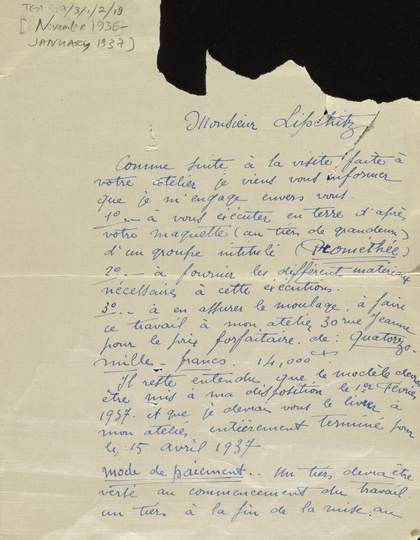 TGA /3/1/2/19
[November 1936-
JANUARY 1937]
Monsieur Lipchitz
Comme suite à la visite faite à
votre atelier je viens vous informer
que je m'engage envers vous
1º _ à vous exécuter en terre d'après
votre maquette (au tiers de grandeur)
d'un groupe intitulé (Promethée)
2º _ à fournir les différent matériaux
nécessaires à cette exécutions.
3º _ à en assurer le moulage, à faire
ce travail à mon atelier 30 rue Jeanne
pour le prix forfaitaire de: quatorze
mille francs. 14,000
Il reste entendu que le modèle devra
être mis à ma disposition le 1er Février
1937. et que je devrai vous le livrer à
mon atelier entièrement terminé pour
le 15 avril 1937
Mode de paiement.. Un tiers devra être
versé au commencement du travail
un tiers à la fin de la mise au